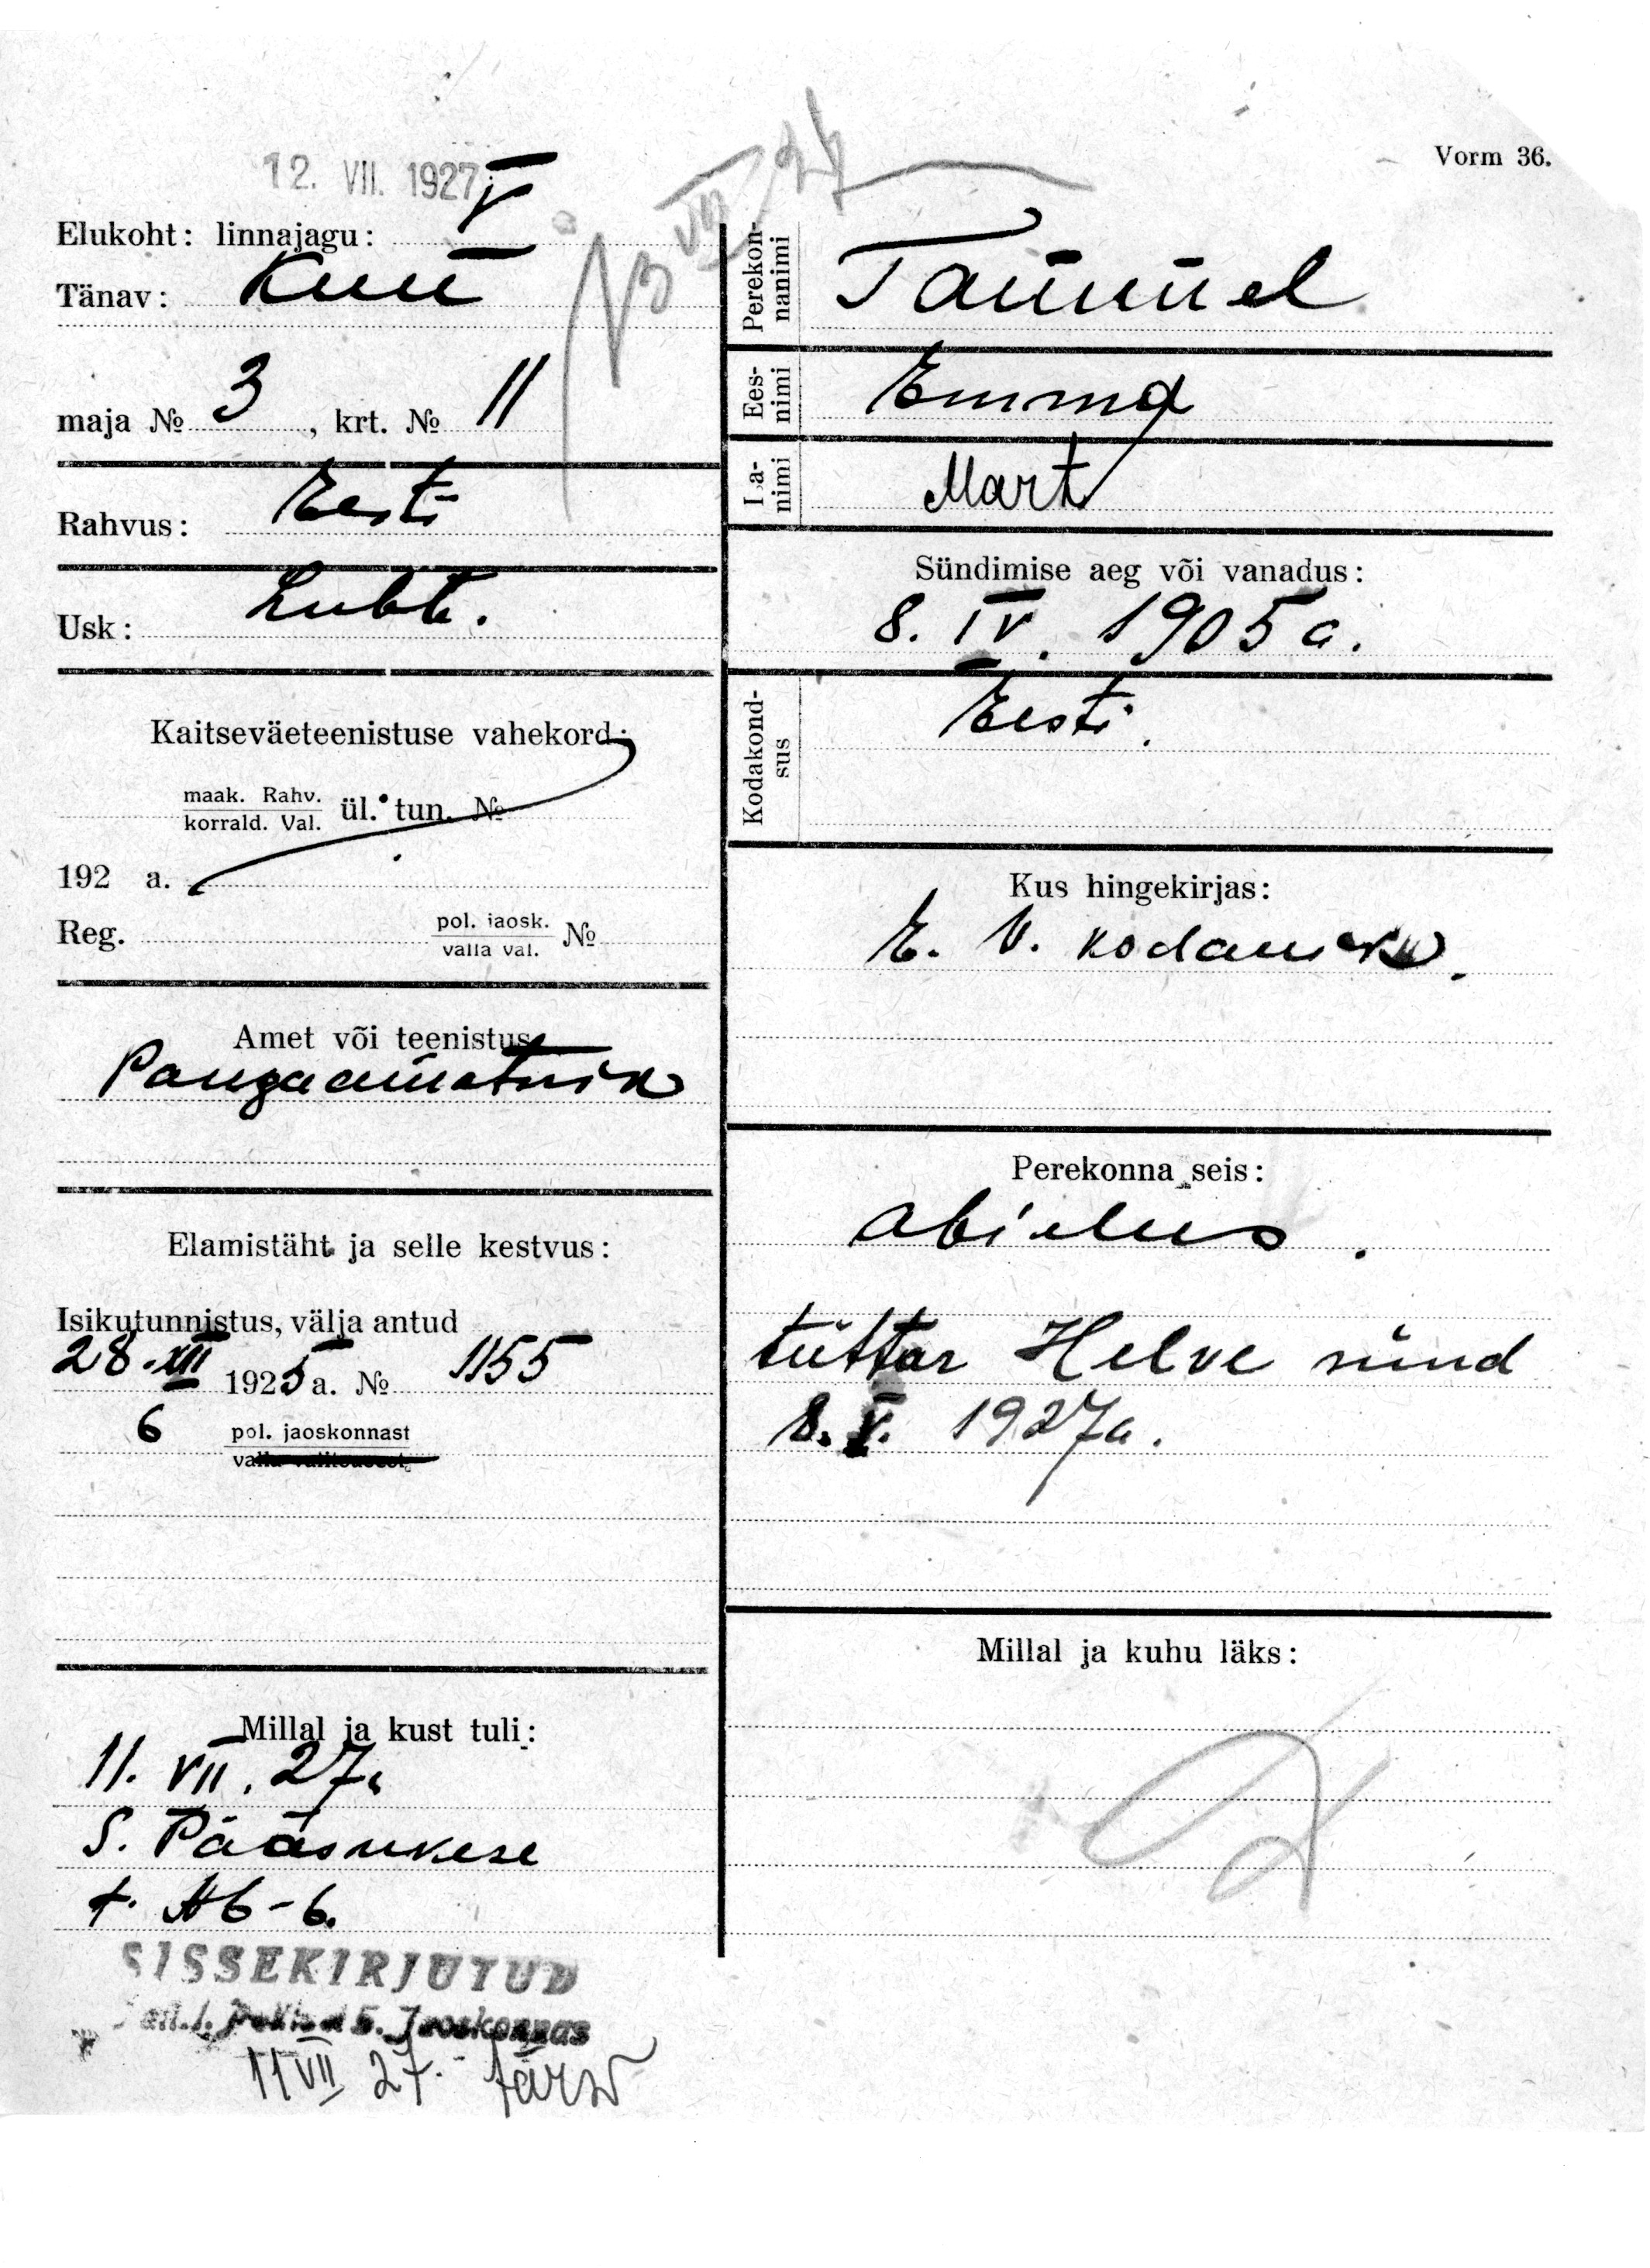 12. VII. 1927
Vorm 36.
Elukoht: linnajagu: V
Tänav:
maja № 3, krt. № 11
Rahvus: Eesti
Usk: Luth.
Kaitseväeteenistuse vahekord:
maak. Rahv.
korrald. Val. ül. tun. №
192 a.
Reg. pol. jaosk.
valla val. №
Amet või teenistus
Pangaametnik
Elamistäht ja selle kestvus:
Isikutunnistus, välja antud
28. XII 1925 a. № 1155
6 pol. jaoskonnast
valla valitsusest
Millal ja kust tuli:
11. VII. 27a
S. Pääsukese
t. 46-6.
SISSEKIRJUTUD
5. Jaoskonnas
11 VII 27. Järw
Perekonnanimi Tammel
Eesnimi Emma
Isanimi Mart
Sündimise aeg või vanadus:
8. IV. 1905 a.
Kodakondsus Eesti.
Kus hingekirjas:
E. V. kodanik.
Perekonna seis:
abielus.
tüttar Helve sünd
8. V. 1927a.
Millal ja kuhu läks: